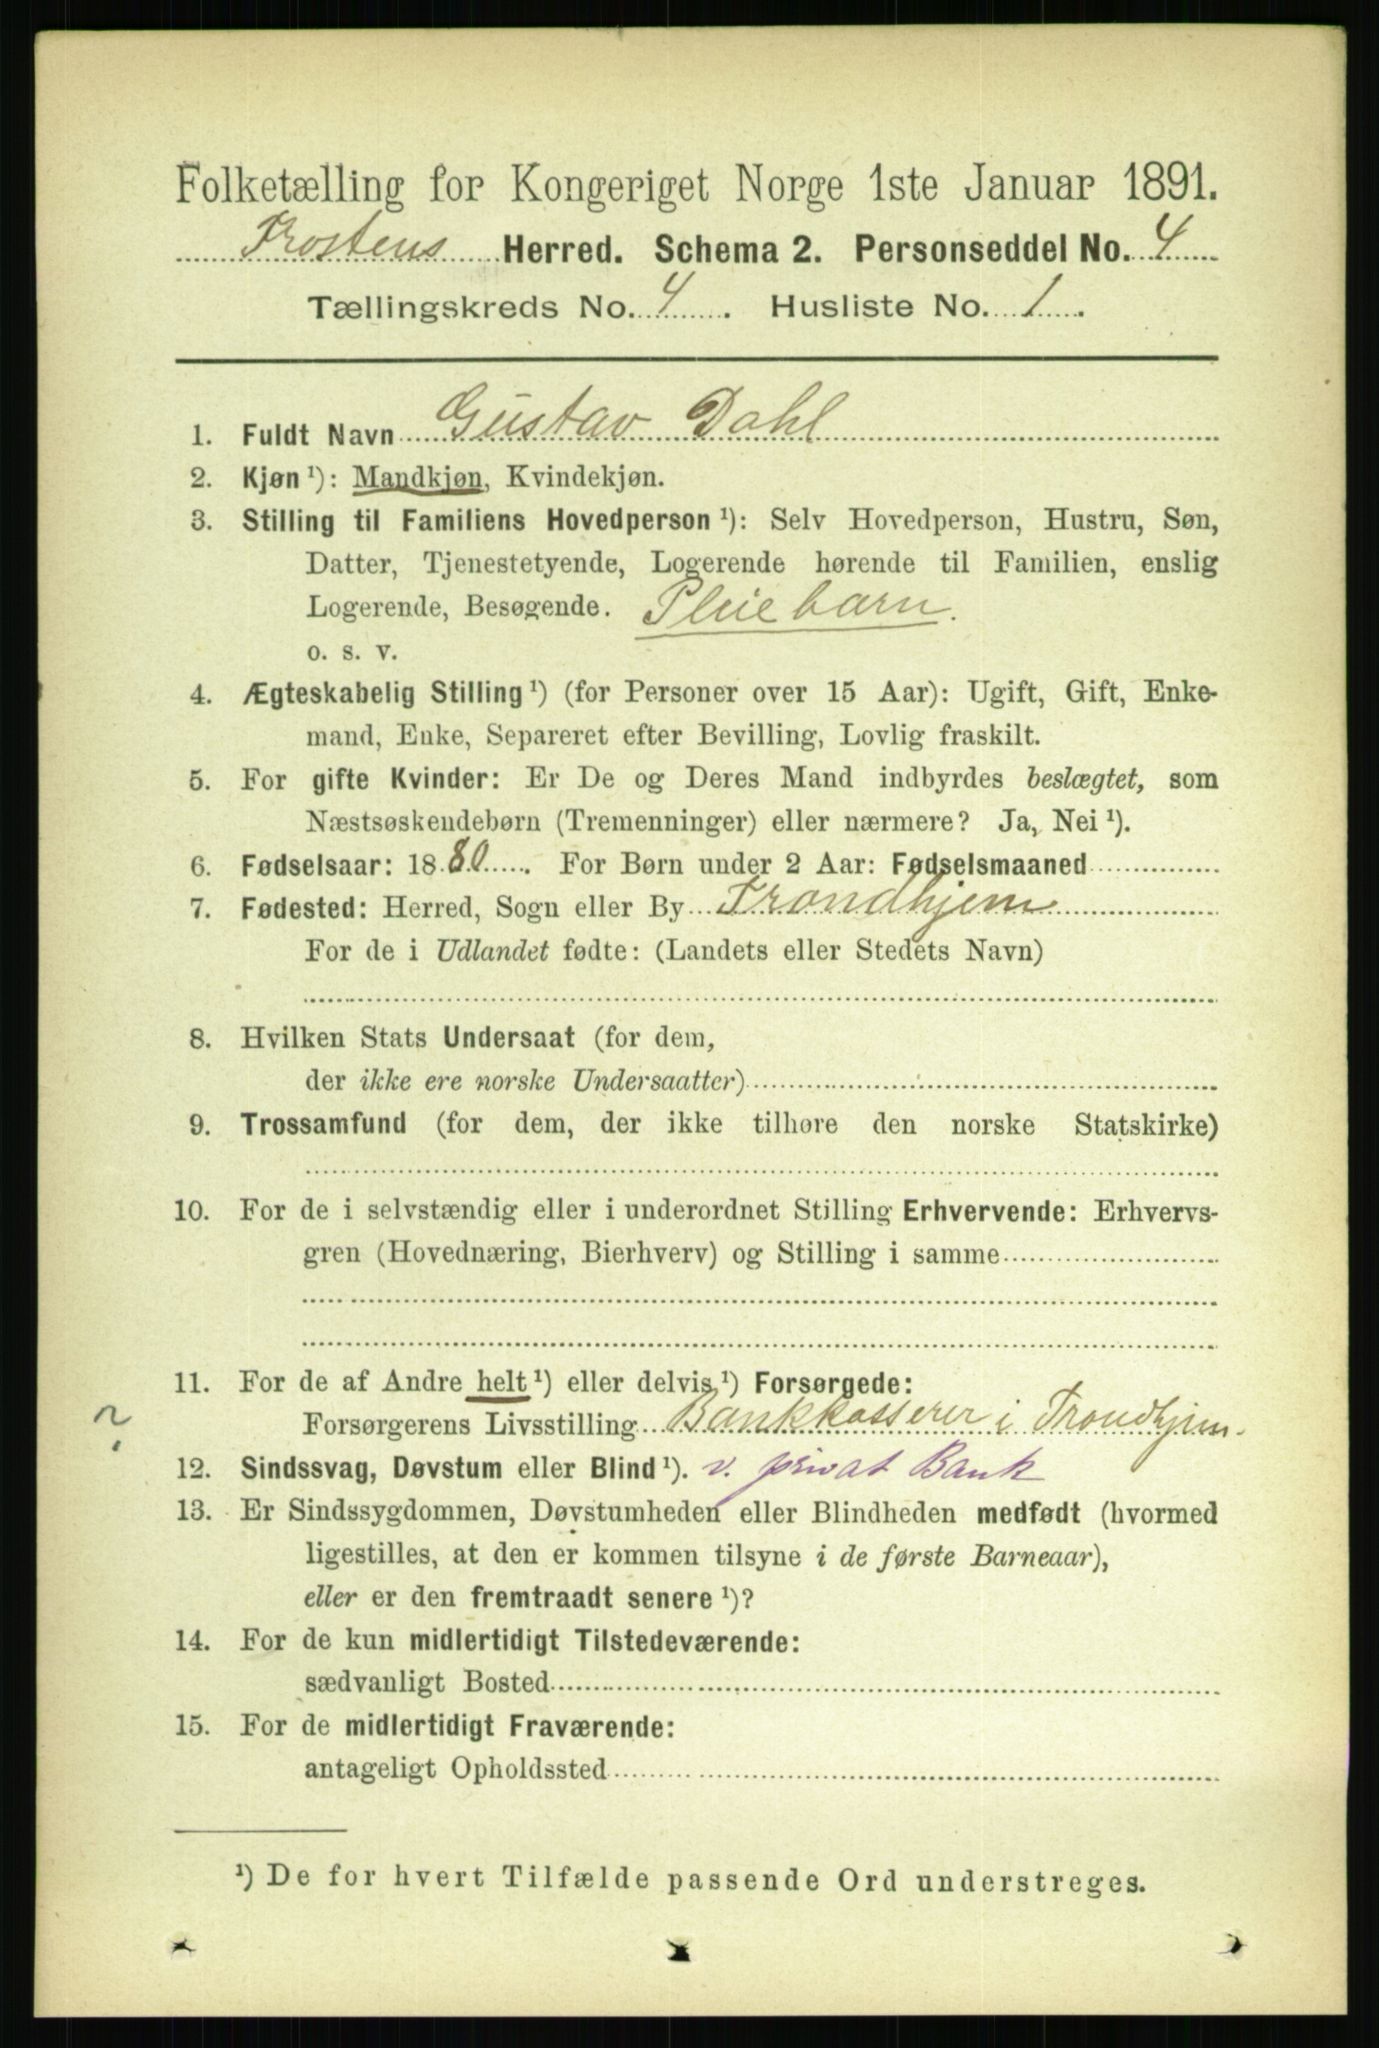 Folketælling for Kongeriget Norge 1ste Januar 1891.
Frostens Herred. Schema 2. Personseddel No. 4
Tællingskreds No. 4. Husliste No. 1.
1. Fuldt Navn Gustav Dahl
2. Kjøn ¹): Mandkjøn, Kvindekjøn.
3. Stilling til Familiens Hovedperson ¹): Selv Hovedperson, Hustru, Søn,
Datter, Tjenestetyende, Logerende hørende til Familien, enslig
Logerende, Besøgende. Pleiebarn.
o. s. v.
4. Ægteskabelig Stilling ¹) (for Personer over 15 Aar): Ugift, Gift, Enke-
mand, Enke, Separeret efter Bevilling, Lovlig fraskilt.
5. For gifte Kvinder: Er De og Deres Mand indbyrdes beslægtet, som
Næstsøskendebørn (Tremenninger) eller nærmere? Ja, Nei ¹).
6. Fødselsaar: 1880. For Børn under 2 Aar: Fødselsmaaned
7. Fødested: Herred, Sogn eller By Trondhjem
For de i Udlandet fødte: (Landets eller Stedets Navn)
8. Hvilken Stats Undersaat (for dem,
der ikke ere norske Undersaatter)
9. Trossamfund (for dem, der ikke tilhøre den norske Statskirke)
10. For de i selvstændig eller i underordnet Stilling Erhvervende: Erhvervs-
gren (Hovednæring, Bierhverv) og Stilling i samme
11. For de af Andre helt ¹) eller delvis ¹) Forsørgede:
? Forsørgerens Livsstilling Bankkasserer i Trondhjem.
12. Sindssvag, Døvstum eller Blind ¹). v. privat Bank
13. Er Sindssygdommen, Døvstumheden eller Blindheden medfødt (hvormed
ligestilles, at den er kommen tilsyne i de første Barneaar),
eller er den fremtraadt senere ¹)?
14. For de kun midlertidigt Tilstedeværende:
sædvanligt Bosted
15. For de midlertidigt Fraværende:
antageligt Opholdssted
¹) De for hvert Tilfælde passende Ord understreges.